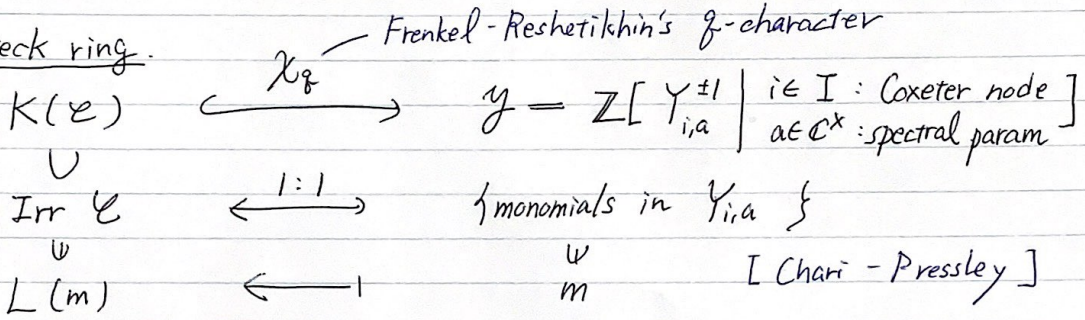 Frenkel-Reshetikhin's q-character
eck ring.
K(𝒞) ↪ χ_q → 𝒴 = ℤ[ Y_{i,a}^{±1} | i ∈ I : Coxeter node
a ∈ ℂ^× : spectral param ]
∪
Irr 𝒞 ⟷ 1:1 {monomials in Y_{i,a}}
ψ ψ
L(m) ⟵| m [Chari - Pressley]